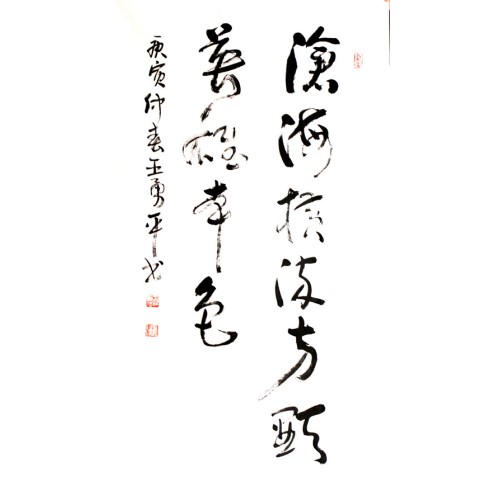 滄海横流方顯
英雄本色
庚寅仲春王勇平书